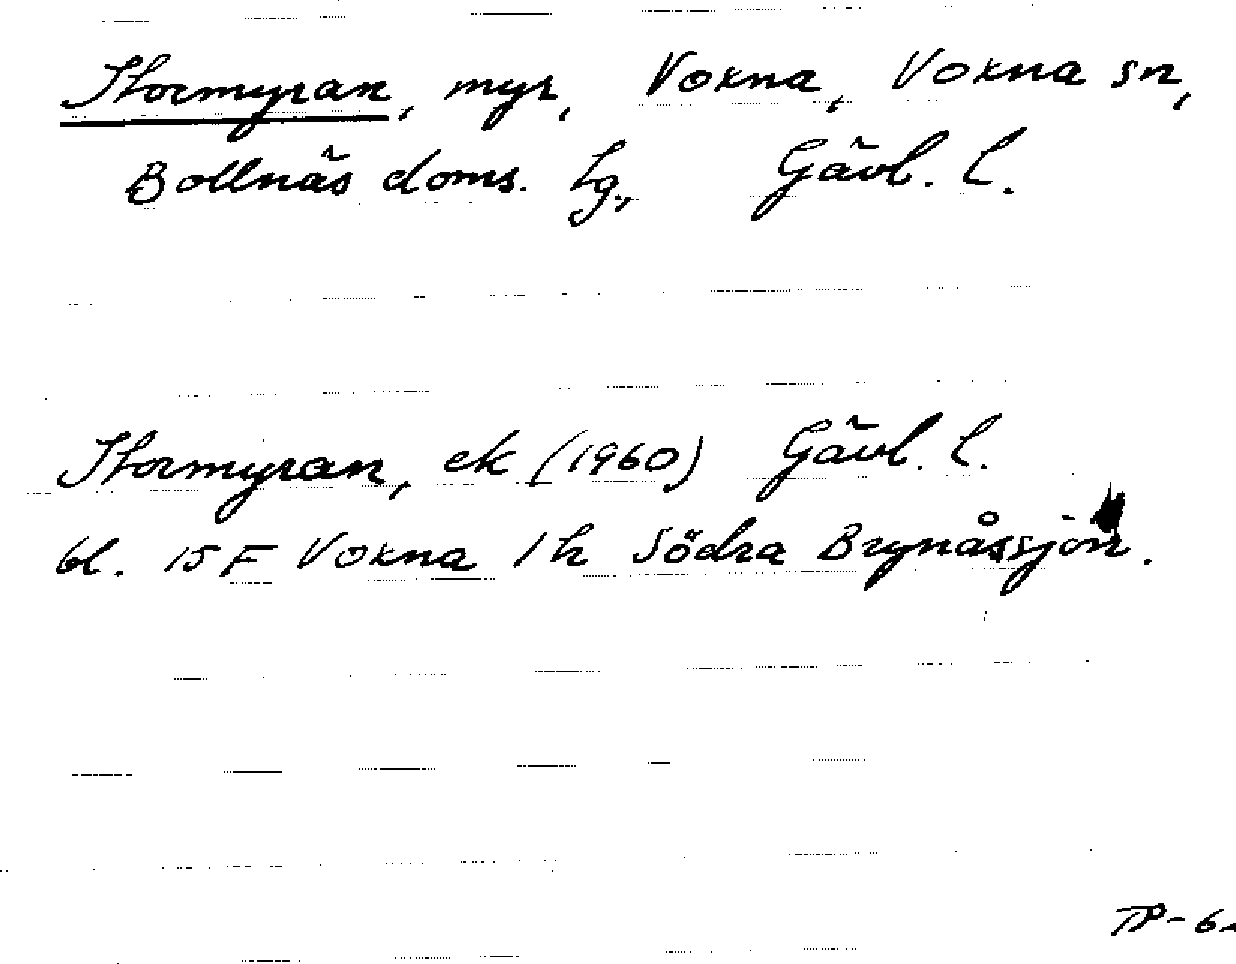 Stormyran, myr, Voxna, Voxna sn,
Bollnäs doms. Lg., Gävl. l.
Stormyran, ek (1960) Gävl. l.
bl. 15 F Voxna 1 h Södra Brynåssjön.